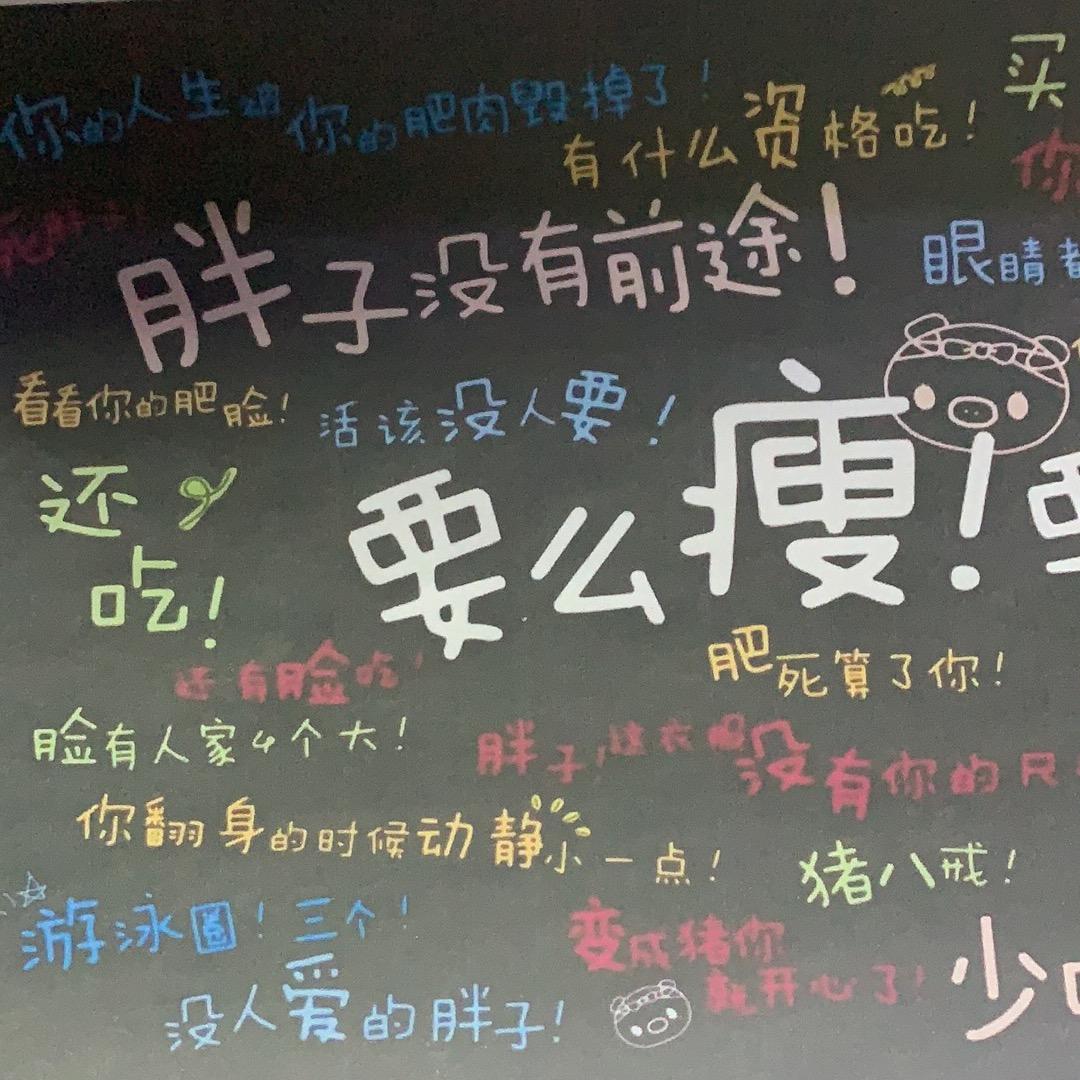 你的人生被你的肥肉毁掉了!
有什么资格吃!
买
你
胖子没有前途!
眼睛都
看看你的肥脸!
活该没人要!
还
吃!
要么瘦!要
还有脸吃!
肥死算了你!
脸有人家4个大!
胖子,这衣服没有你的尺
你翻身的时候动静小一点!
猪八戒!
游泳圈!三个!
变成猪你
就开心了!
少
没人爱的胖子!